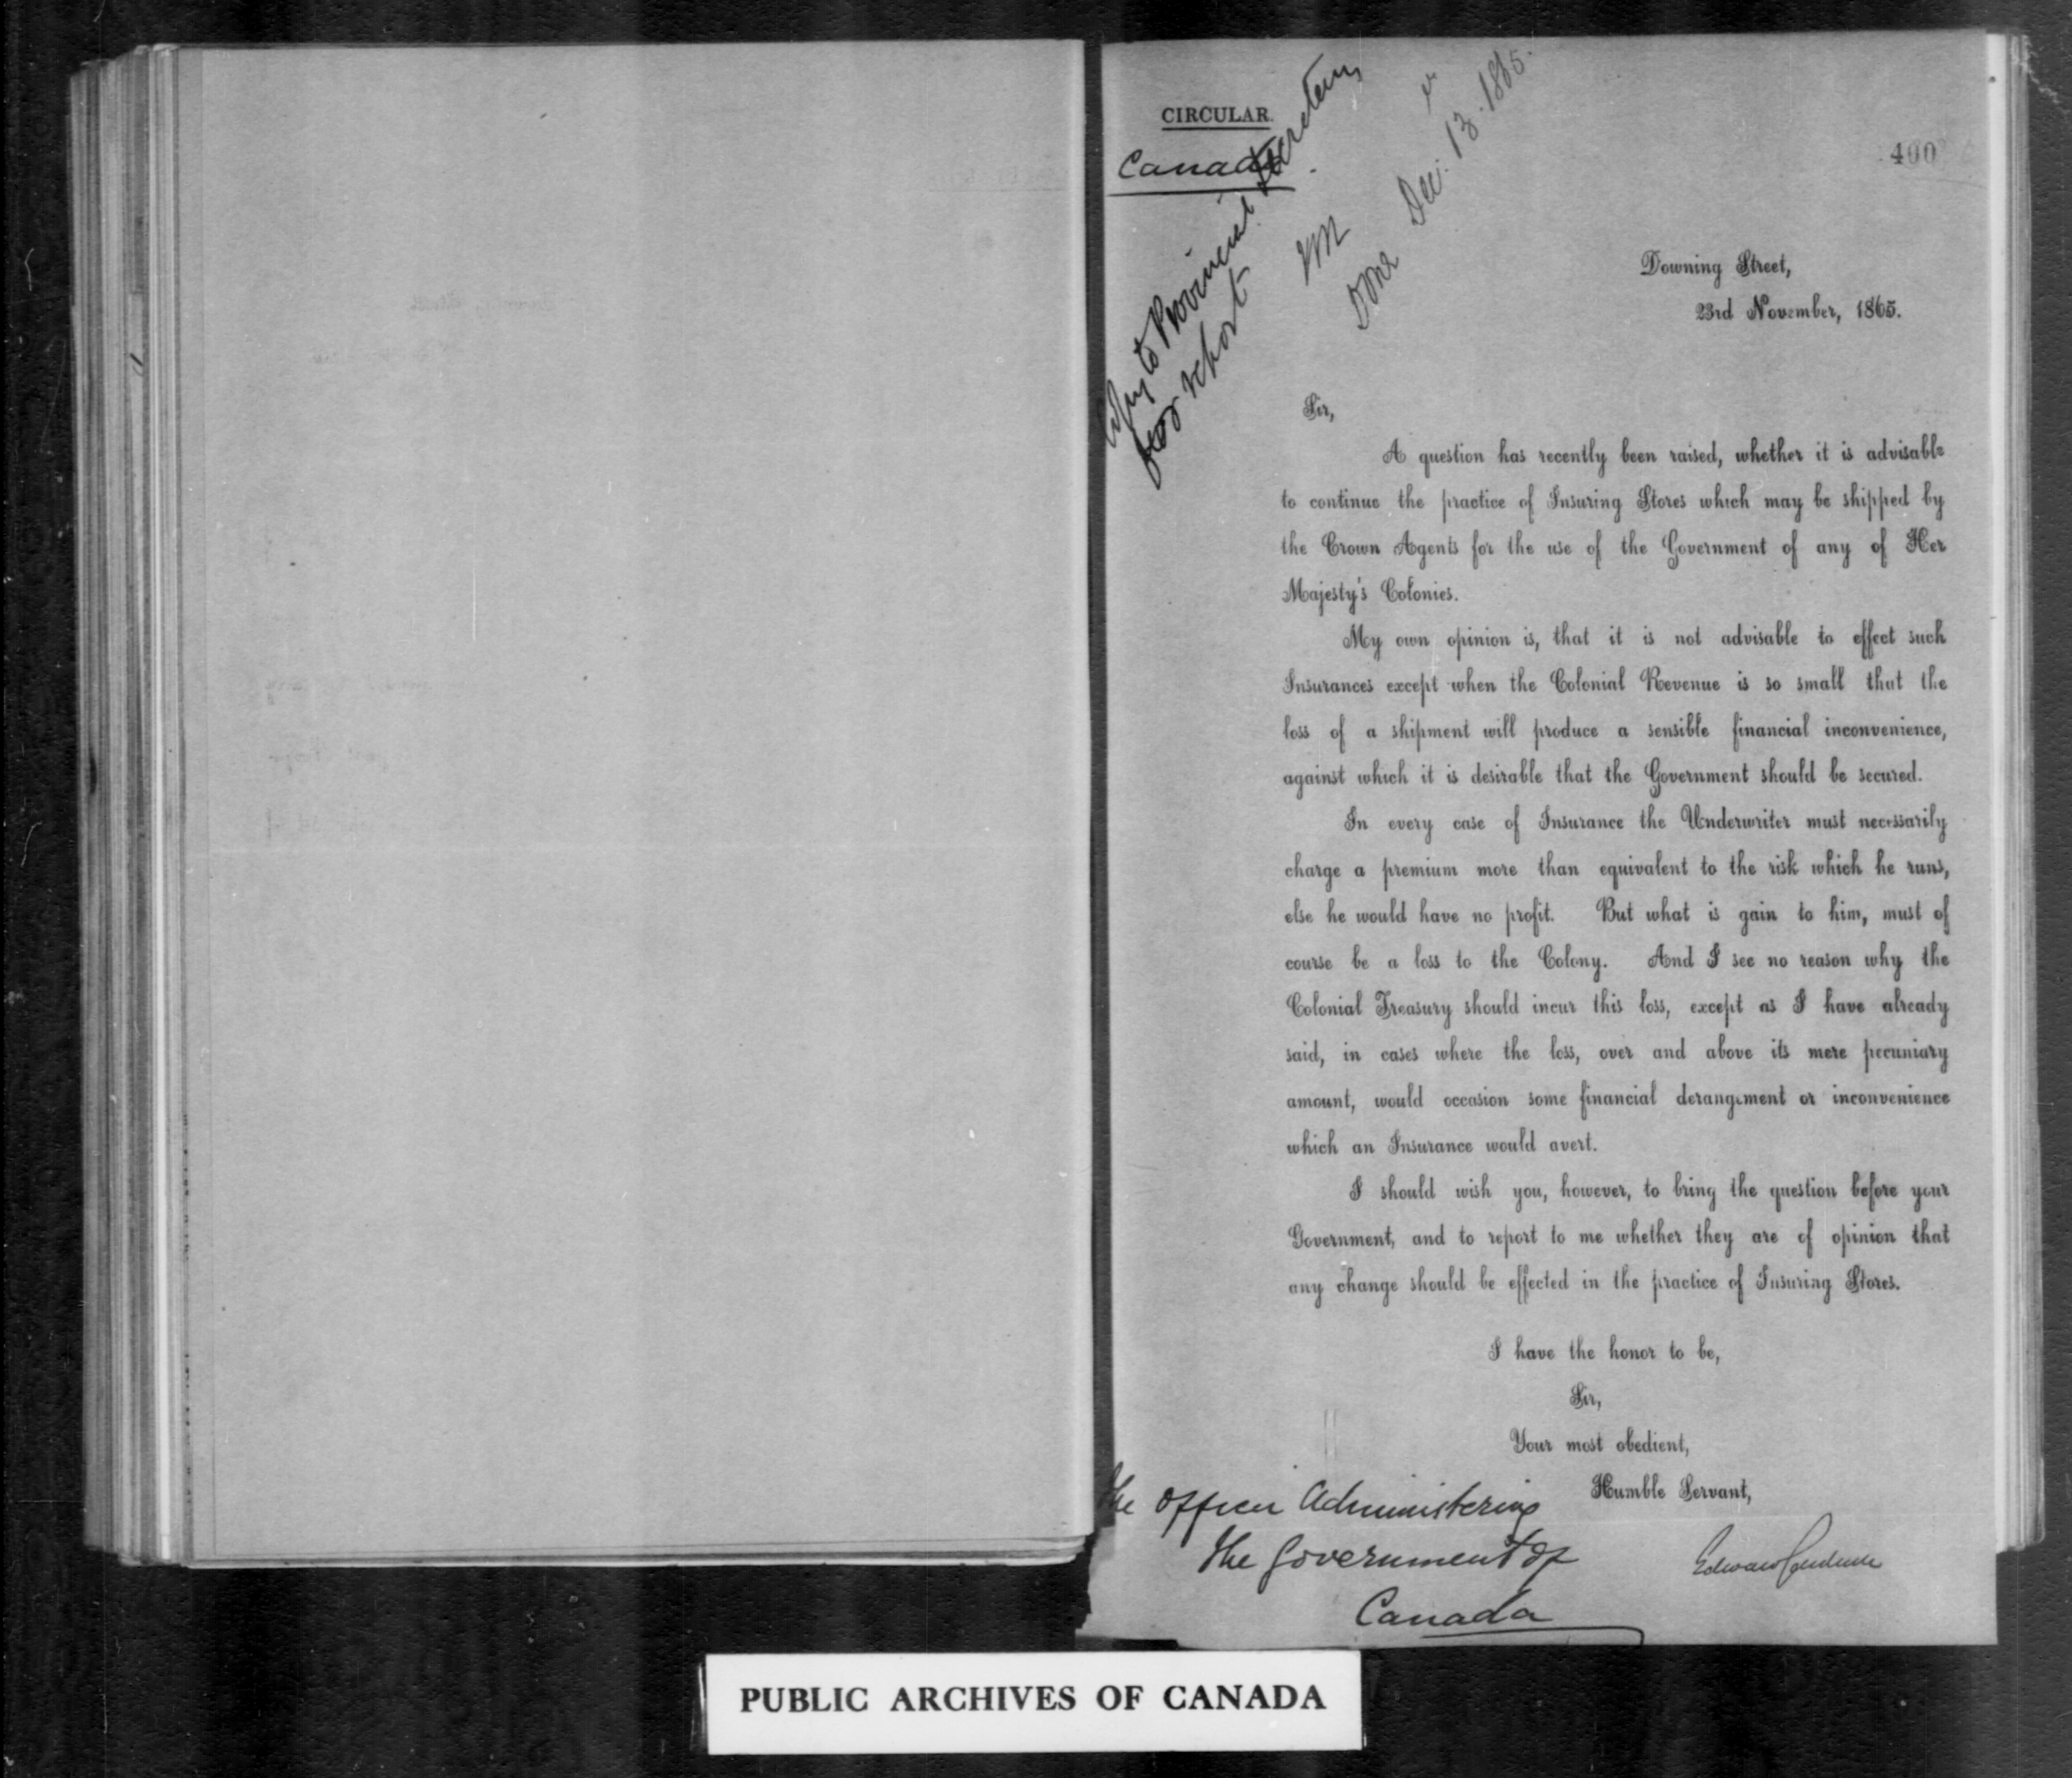 CIRCULAR.
Canada
400
Copy to Provincial Secretary
for report
Done Dec. 13. 1865.
Downing Street,
23rd November, 1865.
Sir,
A question has recently been raised, whether it is advisable
to continue the practice of Insuring Stores which may be shipped by
the Crown Agents for the use of the Government of any of Her
Majesty's Colonies.
My own opinion is, that it is not advisable to effect such
Insurances except when the Colonial Revenue is so small that the
loss of a shipment will produce a sensible financial inconvenience,
against which it is desirable that the Government should be secured.
In every case of Insurance the Underwriter must necessarily
charge a premium more than equivalent to the risk which he runs,
else he would have no profit. But what is gain to him, must of
course be a loss to the Colony. And I see no reason why the
Colonial Treasury should incur this loss, except as I have already
said, in cases where the loss, over and above its mere pecuniary
amount, would occasion some financial derangement or inconvenience
which an Insurance would avert.
I should wish you, however, to bring the question before your
Government, and to report to me whether they are of opinion that
any change should be effected in the practice of Insuring Stores.
I have the honor to be,
Sir,
Your most obedient,
Humble Servant,
Edward Cardwell
The Officer Administering
the Government of
Canada
PUBLIC ARCHIVES OF CANADA